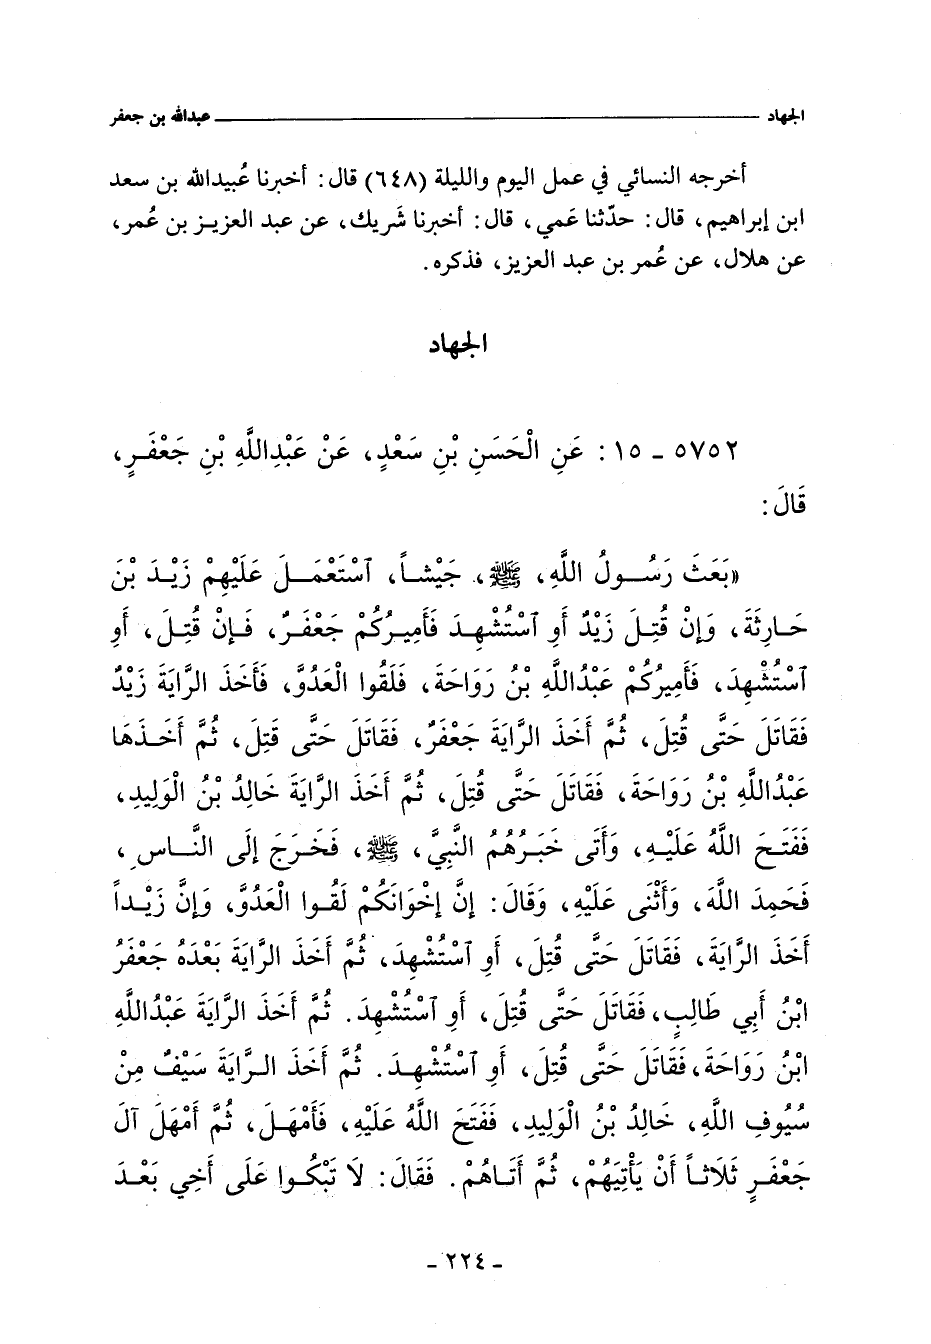 الجهاد ــــــــ عبدالله بن جعفر
أخرجه النسائي في عمل اليوم والليلة (٦٤٨) قال: أخبرنا عُبيدالله بن سعد
ابن إبراهيم، قال: حدّثنا عَمي، قال: أخبرنا شَريك، عن عبد العزيز بن عُمر،
عن هلال، عن عُمر بن عبد العزيز، فذكره.
الجهاد
٥٧٥٢ ـ ١٥: عَنِ الْحَسَنِ بْنِ سَعْدٍ، عَنْ عَبْدِاللَّهِ بْنِ جَعْفَرٍ،
قَالَ:
«بَعَثَ رَسُولُ اللَّهِ، ﷺ، جَيْشاً، ٱسْتَعْمَلَ عَلَيْهِمْ زَيْدَ بْنَ
حَارِثَةَ، وَإِنْ قُتِلَ زَيْدٌ أَوِ ٱسْتُشْهِدَ فَأَمِيرُكُمْ جَعْفَرٌ، فَإِنْ قُتِلَ، أَوِ
ٱسْتُشْهِدَ، فَأَمِيرُكُمْ عَبْدُاللَّهِ بْنُ رَوَاحَةَ، فَلَقُوا الْعَدُوَّ، فَأَخَذَ الرَّايَةَ زَيْدٌ
فَقَاتَلَ حَتَّى قُتِلَ، ثُمَّ أَخَذَ الرَّايَةَ جَعْفَرٌ، فَقَاتَلَ حَتَّى قُتِلَ، ثُمَّ أَخَذَهَا
عَبْدُاللَّهِ بْنُ رَوَاحَةَ، فَقَاتَلَ حَتَّى قُتِلَ، ثُمَّ أَخَذَ الرَّايَةَ خَالِدُ بْنُ الْوَلِيدِ،
فَفَتَحَ اللَّهُ عَلَيْهِ، وَأَتَى خَبَرُهُمُ النَّبِيَّ، ﷺ، فَخَرَجَ إِلَى النَّاسِ،
فَحَمِدَ اللَّهَ، وَأَثْنَى عَلَيْهِ، وَقَالَ: إِنَّ إِخْوَانَكُمْ لَقُوا الْعَدُوَّ، وَإِنَّ زَيْداً
أَخَذَ الرَّايَةَ، فَقَاتَلَ حَتَّى قُتِلَ، أَوِ ٱسْتُشْهِدَ، ثُمَّ أَخَذَ الرَّايَةَ بَعْدَهُ جَعْفَرُ
ابْنُ أَبِي طَالِبٍ، فَقَاتَلَ حَتَّى قُتِلَ، أَوِ ٱسْتُشْهِدَ. ثُمَّ أَخَذَ الرَّايَةَ عَبْدُاللَّهِ
ابْنُ رَوَاحَةَ، فَقَاتَلَ حَتَّى قُتِلَ، أَوِ ٱسْتُشْهِدَ. ثُمَّ أَخَذَ الرَّايَةَ سَيْفٌ مِنْ
سُيُوفِ اللَّهِ، خَالِدُ بْنُ الْوَلِيدِ، فَفَتَحَ اللَّهُ عَلَيْهِ، فَأَمْهَلَ، ثُمَّ أَمْهَلَ آلَ
جَعْفَرٍ ثَلَاثاً أَنْ يَأْتِيَهُمْ، ثُمَّ أَتَاهُمْ. فَقَالَ: لَا تَبْكُوا عَلَى أَخِي بَعْدَ
- ٢٢٤ -